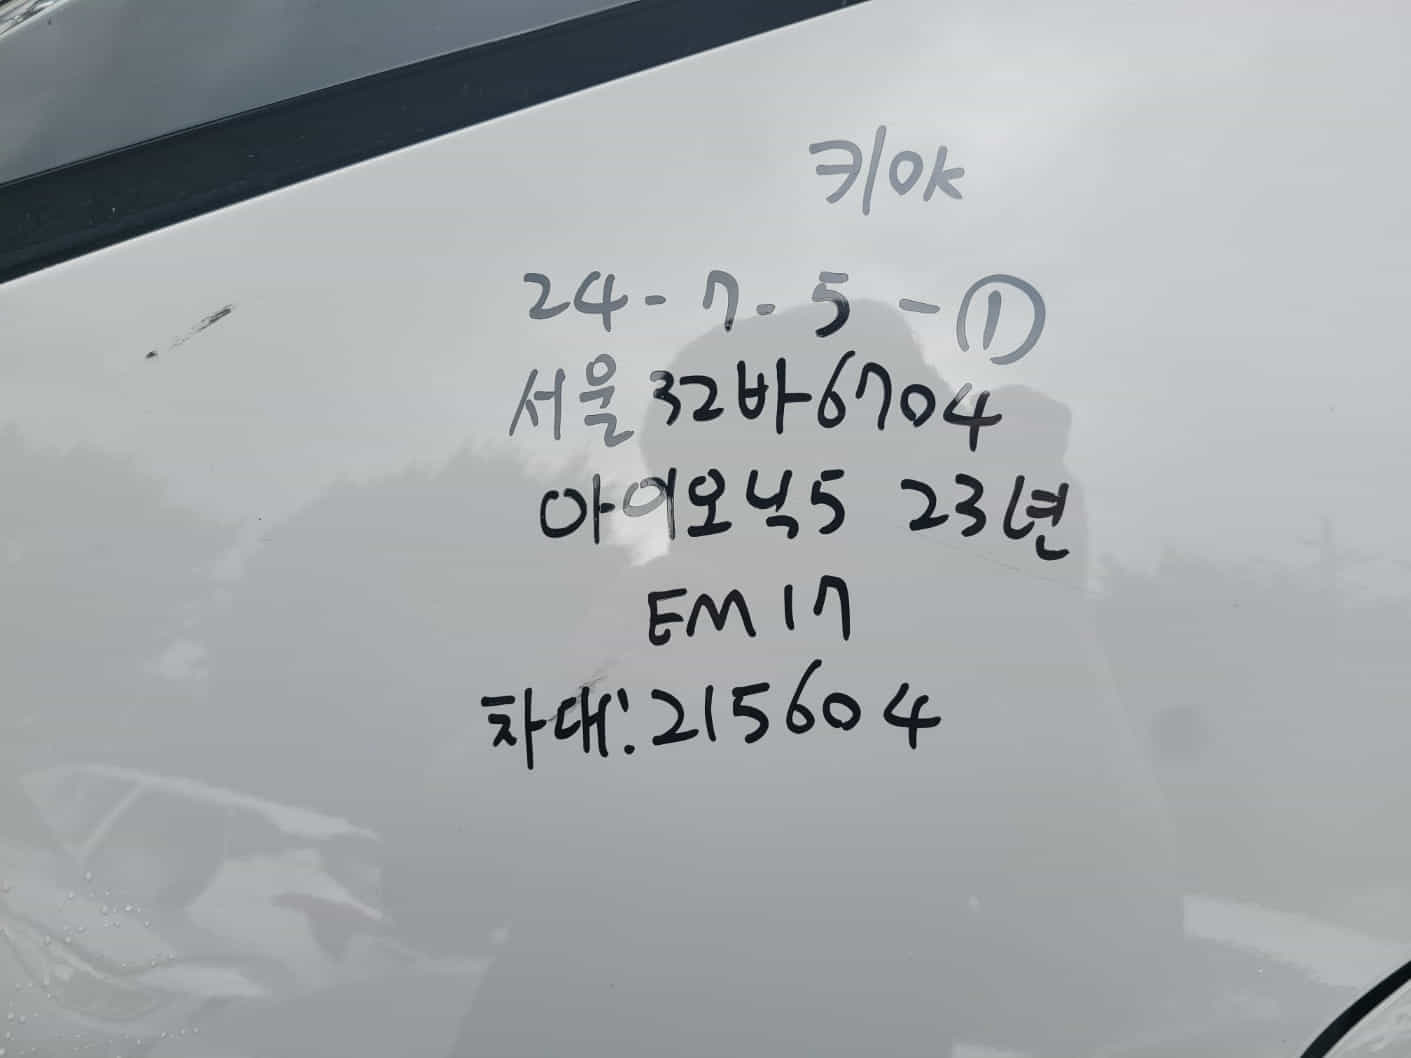 키/OK
24-7.5-①
서울32바6704
아이오닉5 23년
EM17
차대:215604